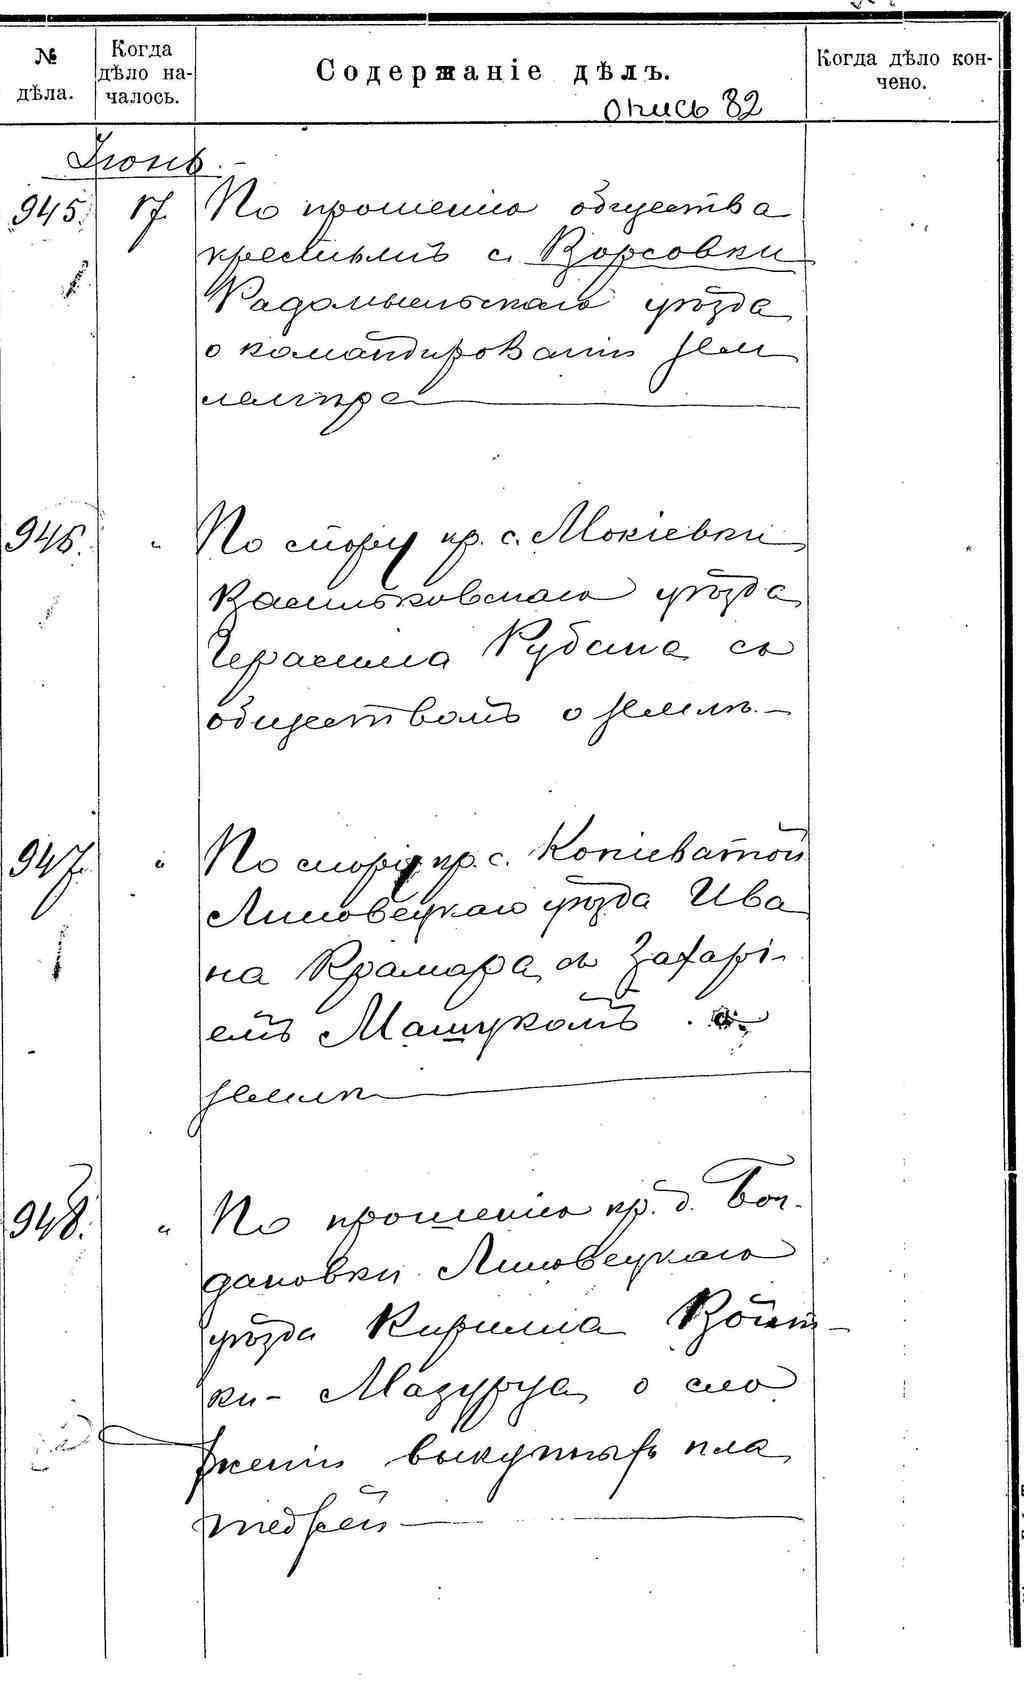 № дѣла.
Когда дѣло на-
чалось.
Содержаніе дѣлъ.
Когда дѣло кон-
чено.
опись 82
Іюнь.
945. 17. По прошенію общества
крестьянъ с. Ворсовки
Радомысльскаго уѣзда
о командированіи зем
лемѣра
946. " По спору кр. с. Мокіевки
Васильковскаго уѣзда
Герасима Рубана съ
обществомъ о землѣ.
947. " По спору кр. с. Копіеватой
Липовецкаго уѣзда Ива
на Крамара съ Захарі-
емъ Машукомъ о
землѣ
948. " По прошенію кр. д. Бог-
дановки Липовецкаго
уѣзда Кирилла Войт-
ки- Мазура о сло
женіи выкупныхъ пла
тежей